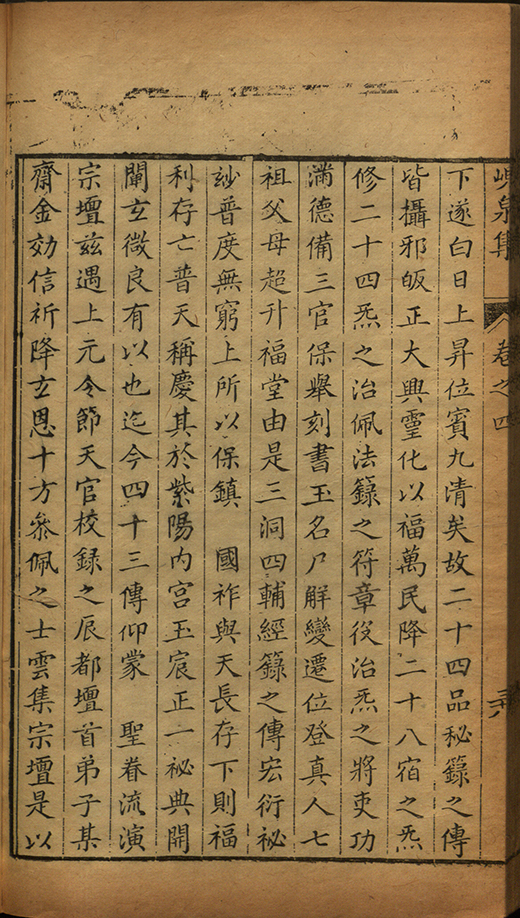 峴泉集 卷之四 三十八
下遂白日上昇位賓九清矣故二十四品秘籙之傳
皆攝邪皈正大興靈化以福萬民降二十八宿之炁
修二十四炁之治佩法籙之符章役治炁之將吏功
滿德備三官保舉刻書玉名尸觧變遷位登真人七
祖父母超升福堂由是三洞四輔經籙之傳宏衍祕
玅普度無窮上所以保鎮 國祚與天長存下則福
利存亡普天稱慶其於紫陽内宫玉宸正一祕典開
闡玄微良有以也迄今四十三傳仰蒙 聖眷流演
宗壇兹遇上元令節天官校録之辰都壇首弟子某
齋金効信祈降玄恩十方叅佩之士雲集宗壇是以